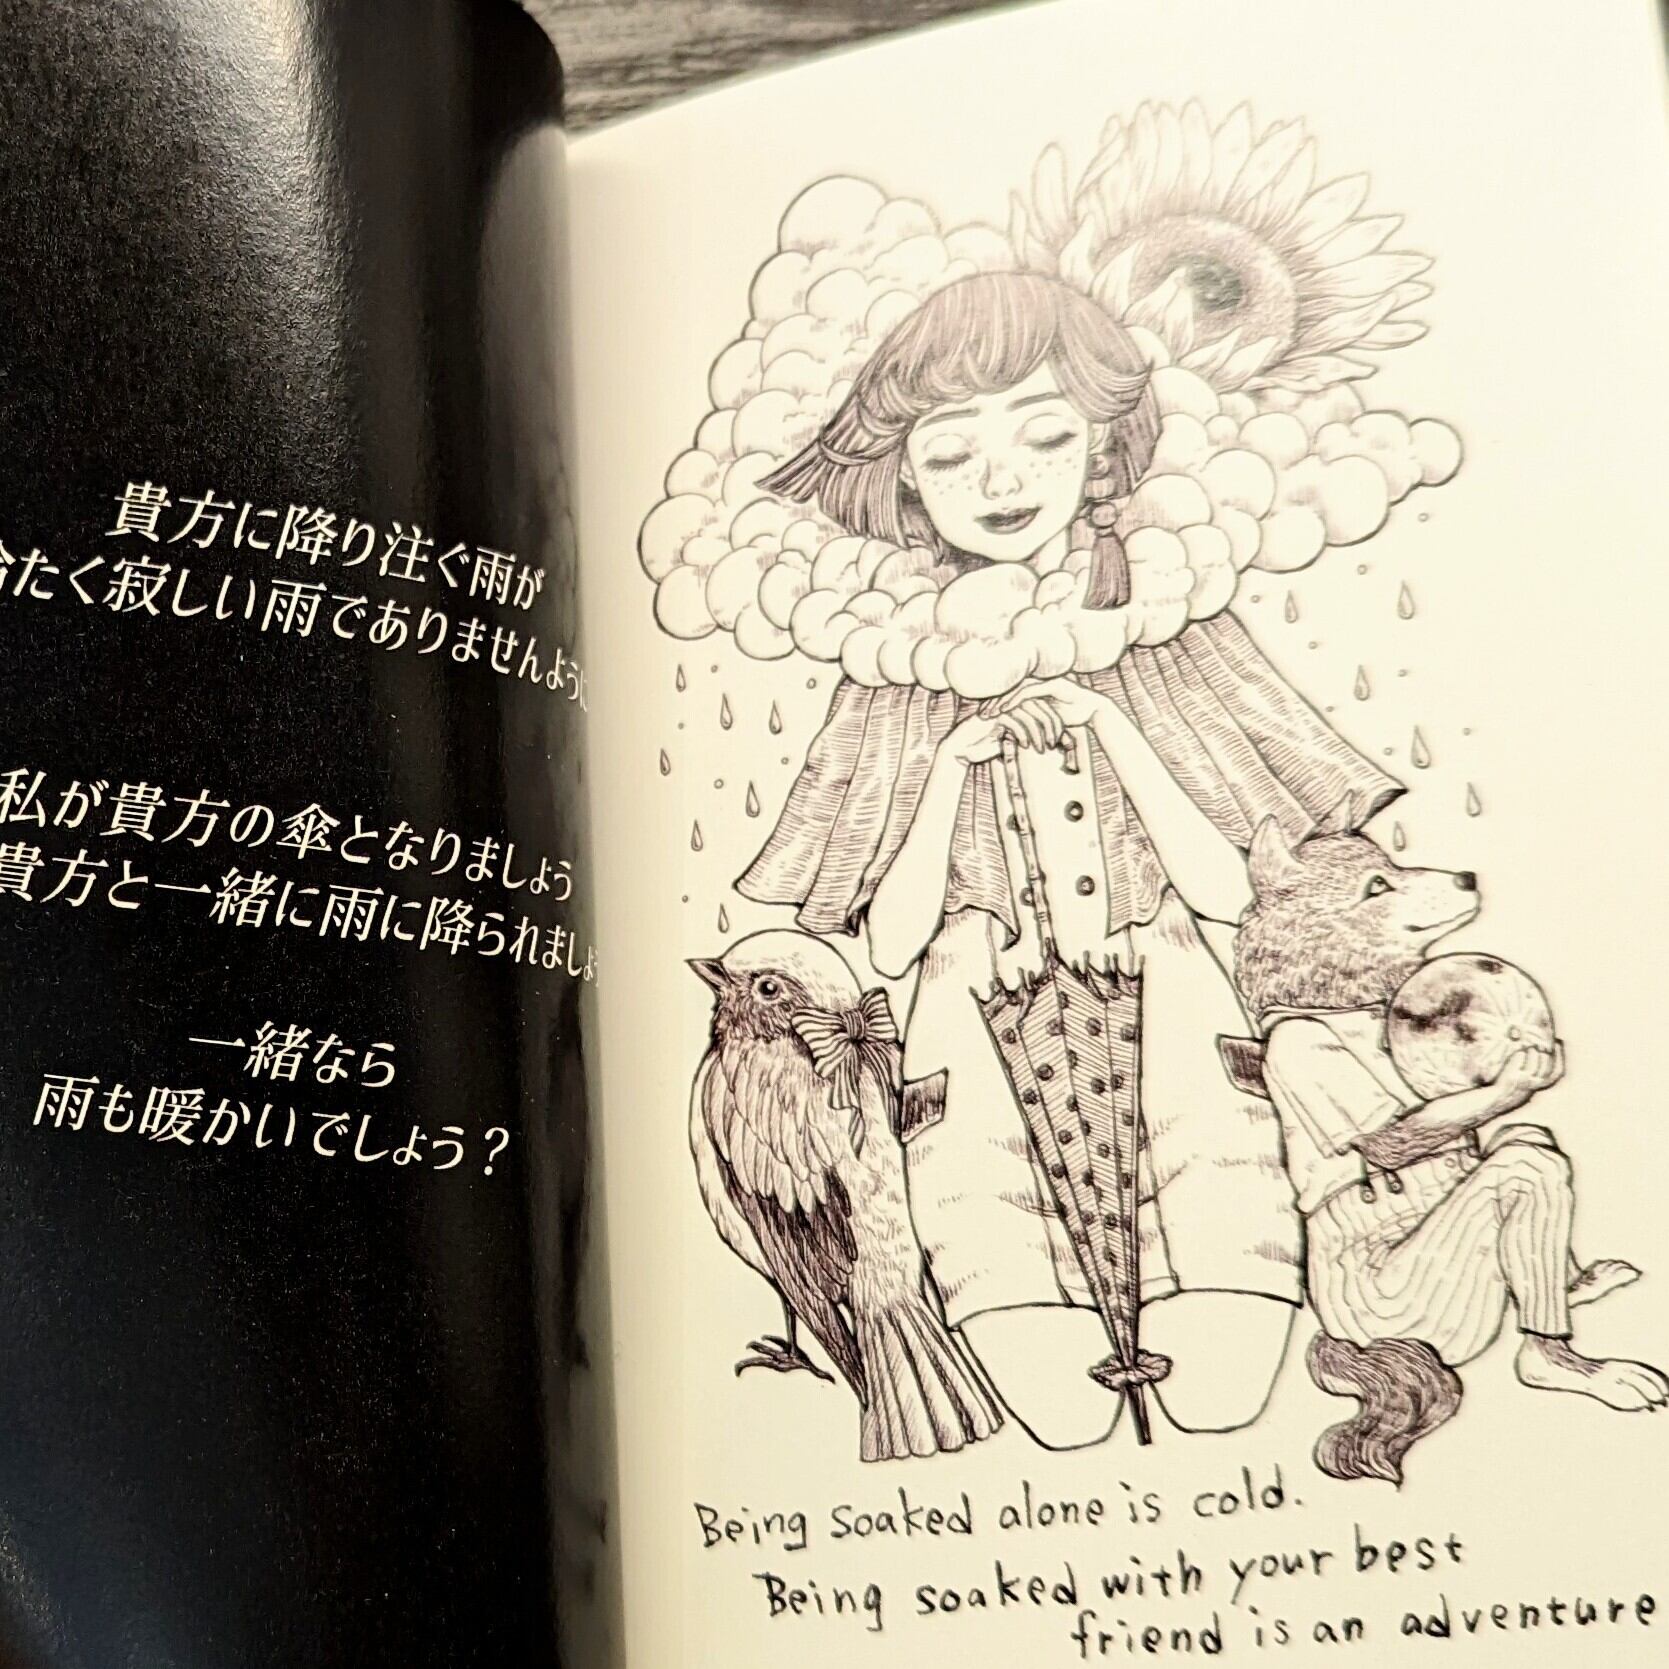 貴方に降り注ぐ雨が
冷たく寂しい雨でありませんように
私が貴方の傘となりましょう
貴方と一緒に雨に降られましょう
一緒なら
雨も暖かいでしょう？
Being soaked alone is cold.
Being soaked with your best
friend is an adventure